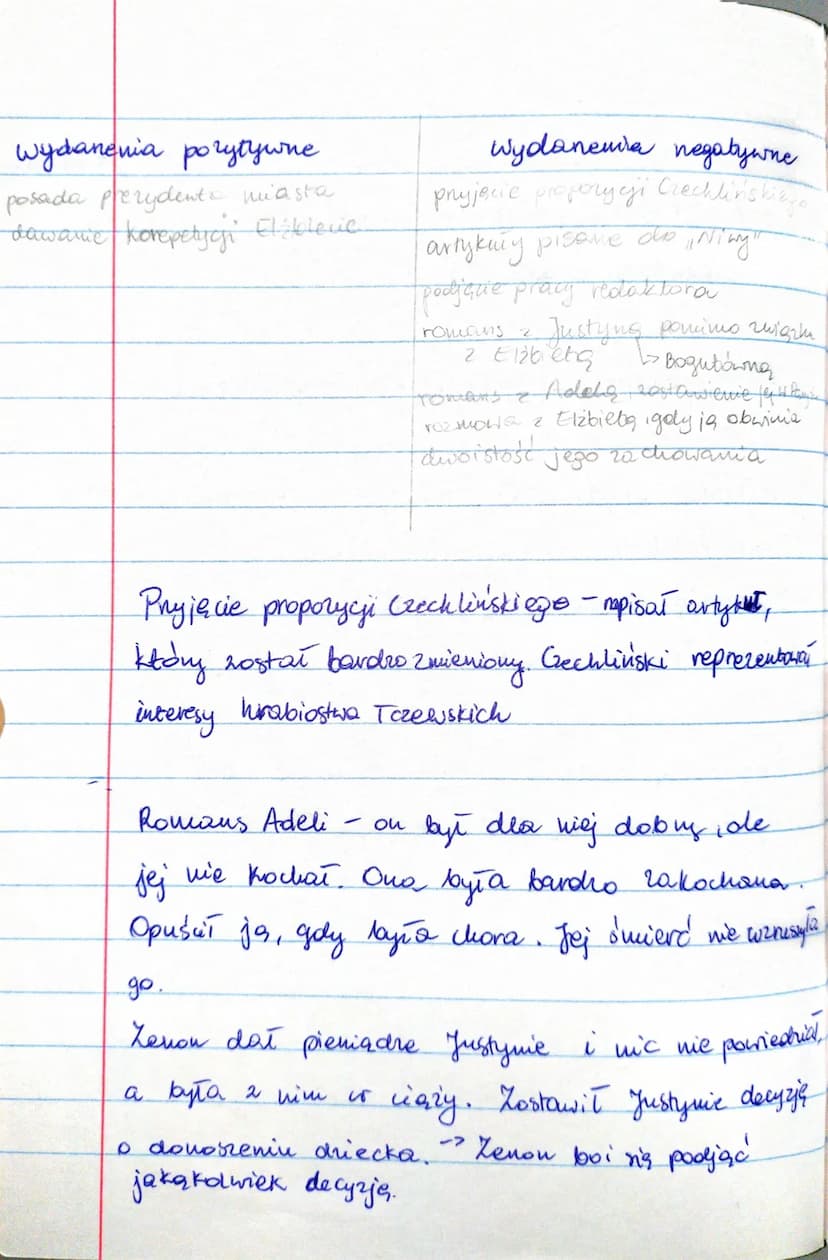 wydarzenia pozytywne
posada prezydenta miasta
dawanie korepetycji Elżbiecie
wydarzenia negatywne
przyjęcie propozycji Czechlińskiego
artykuły pisane do „Niwy"
podjęcie pracy redaktora
romans z Justyną pomimo związku
z Elżbietą ↳ Bogutówną
romans z Adelą, zostawienie jej w Paryżu
rozmowa z Elżbietą, gdy ją obwinia
dwoistość jego zachowania
Przyjęcie propozycji Czechlińskiego – napisał artykuł,
który został bardzo zmieniony. Czechliński reprezentował
interesy hrabiostwa Tczewskich
Romans Adeli – on był dla niej dobry, ale
jej nie kochał. Ona była bardzo zakochana.
Opuścił ją, gdy była chora. Jej śmierć nie wzruszyła
go.
Zenon dał pieniądze Justynie i nic nie powiedział,
a była z nim w ciąży. Zostawił Justynie decyzję
o donoszeniu dziecka. -> Zenon boi się podjąć
jakąkolwiek decyzję.